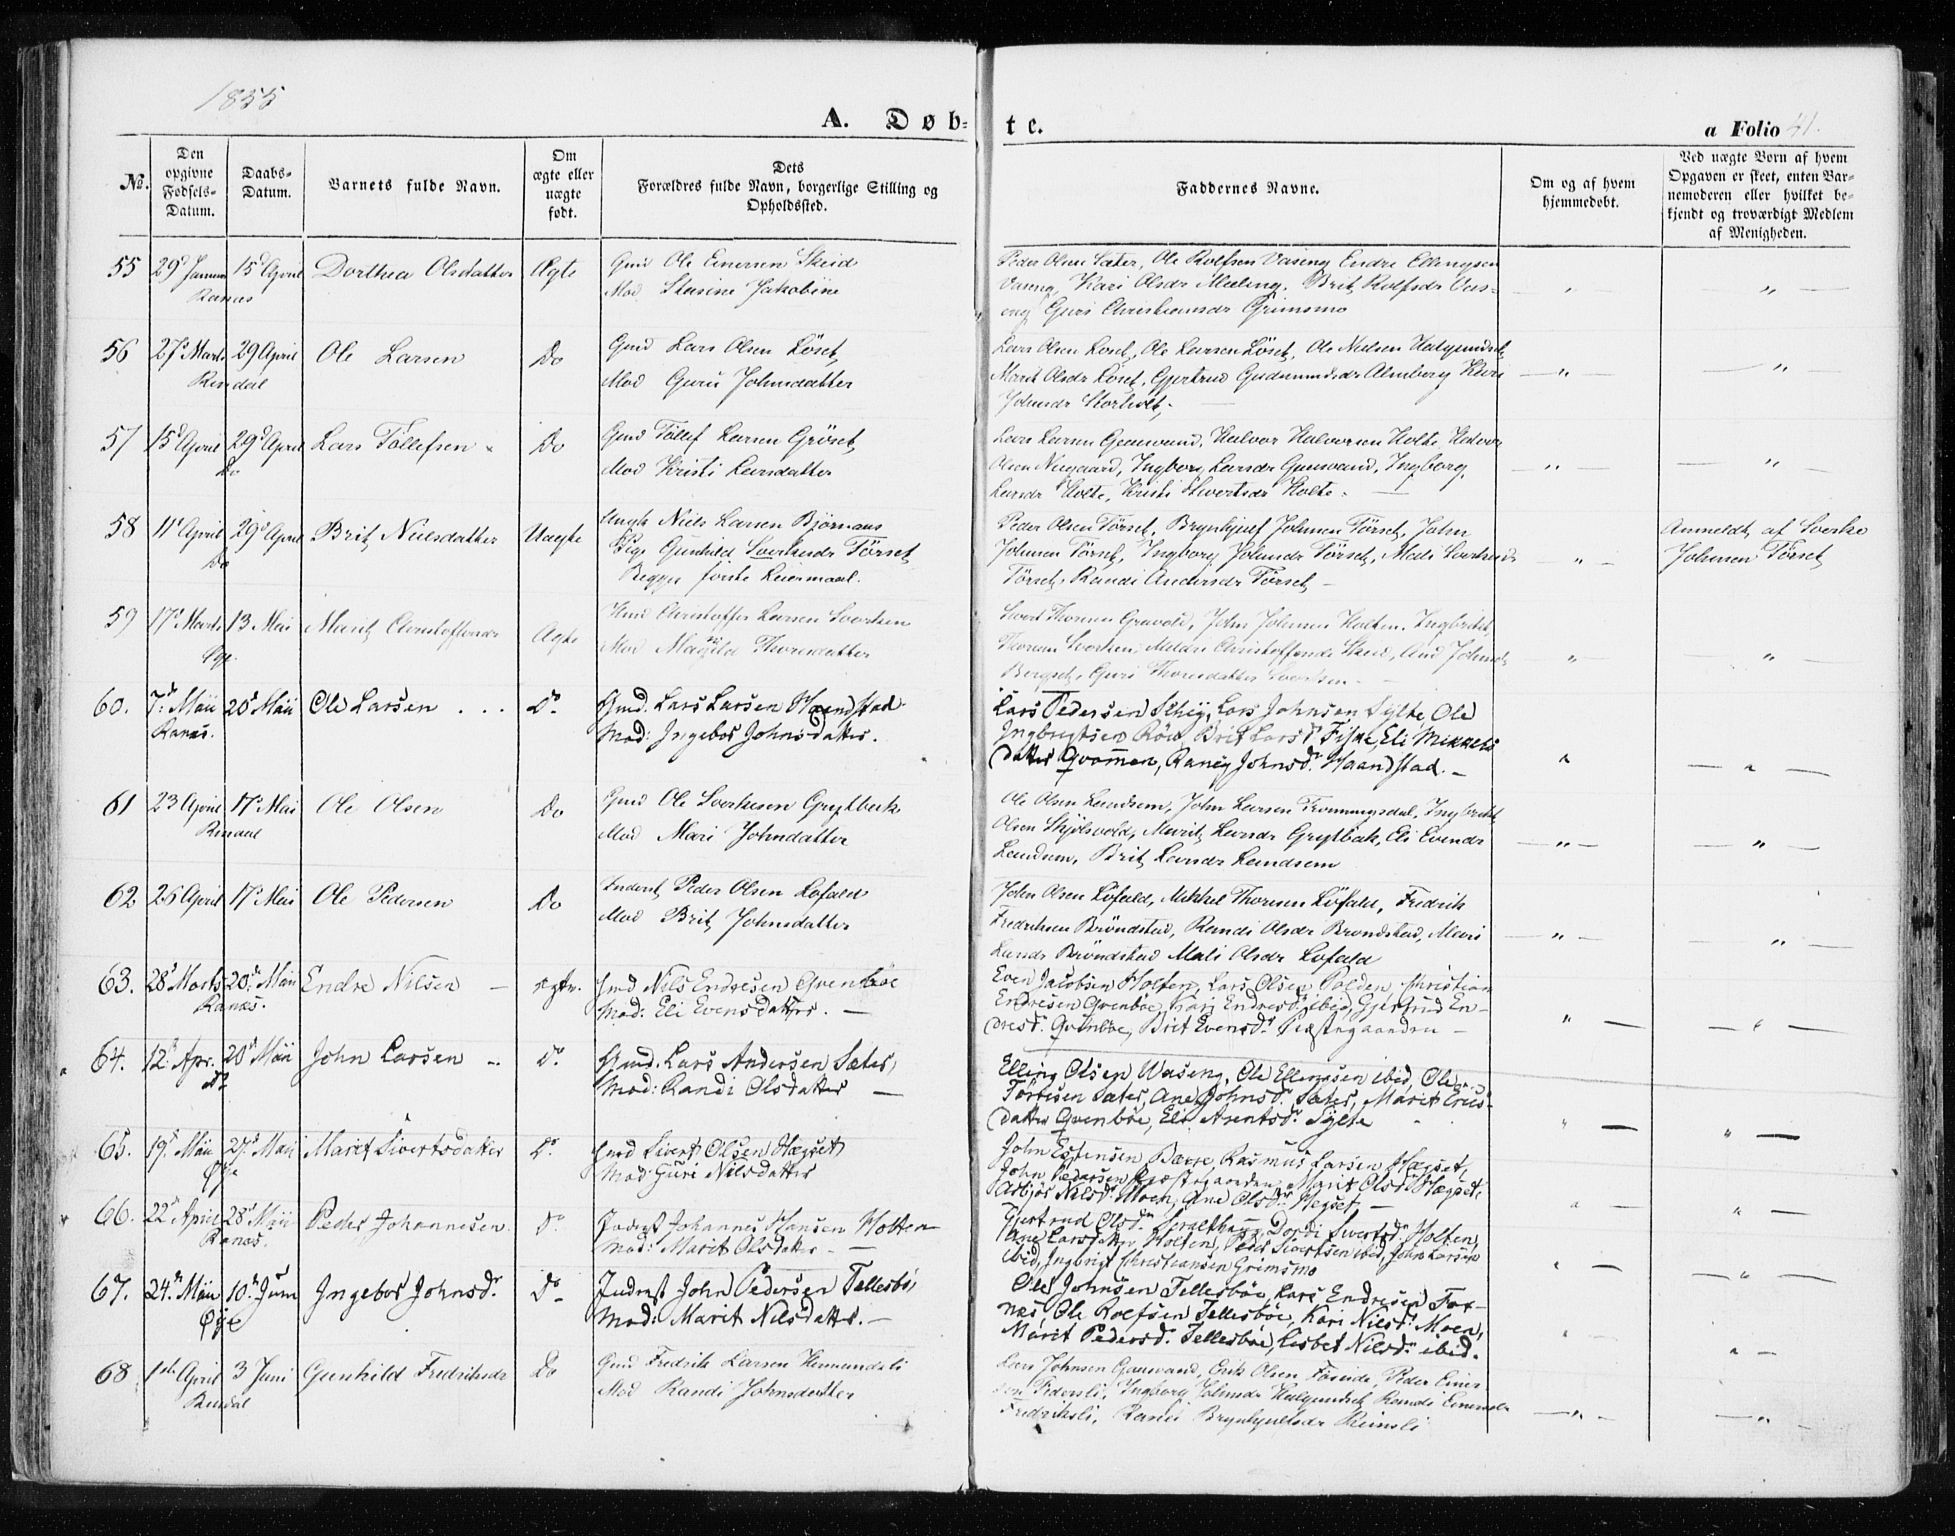 1855
A. Døb-
te.
a Folio 41.
No.
Den opgivne Fødsels-Datum.
Daabs-Datum.
Barnets fulde Navn.
Om ægte eller uægte født.
Dets Forældres fulde Navn, borgerlige Stilling og Opholdssted.
Faddernes Navne.
Om og af hvem hjemmedøbt.
Ved uægte Born af hvem Opgaven er skeet, enten Barnemoderen eller hvilket bekjendt og troværdigt Medlem af Menigheden.
55 29d Januar 15d April Dorthea Olsdatter Ægte Gmd Ole Einersen Skeid
Ranæs Mod Jakobine
Peder Olsen Sæter, Ole Rolfsen Vaseng Endre Ellingsen
Vaseng, Kari Olsdr Mæling, Brit Rolfsdr Vas-
eng Guri Christiansdr Grimsmo
56 27d Marts 29 April Ole Larsen Do Gmd Lars Olsen Löset,
Rindal Mod Guru Johnsdatter
Lars Olsen Löset, Ole Larsen Löset, Ole Nielsen Halgundset,
Marit Olsdr Löset, Gjertrud Gudmundsdr Almberg Kari
Johnsdr Storholt,
57 15d April 29d April Lars Töllefsen Do Gmd Tölluf Larsen Gröset
Do Mod Kristi Larsdatter
Lars Larsen Gaasvand, Halvor Halvorsen Holte Halvor
Olsen Nergaard, Ingborg Larsdr Gaasvand, Ingborg
Larsdr Holte, Kristi Sivertsdr Holte.
58 11d April 29d April Brit Nielsdatter Uægte Ungk Niels Larsen Björnaas
Do Pige Gunhild Sverkesdr Törset
Begges förste Leiermaal.
Peder Olsen Törset, Brynhjulf Johnsen Törset, John
Johnsen Törset, Ingborg Johnsdr Törset, Mali Sverkesdr
Törset, Randi Andersdr Törset
Anmeldt af Sverke
Johnsen Törset
59 17d Marts 13 Mai Marit Christoffersdr Ægte Christoffer Larsen
Öye Mod Magnild Thoresdatter
60. 7d Mäii 20d Mäii Ole Larsen Do Gmd. Lars Larsen Haandstad
Ranæs. Mod: Ingebor Johnsdatter.
Lars Pedersen Schey, Lars Johnsen Sylte, Ole
Ingbrigtsen Röe, Brit Larsdr Fiske, Eli Mikkels
datter Qvammen, Raney Johnsdr. Haandstad.
61 23 April 17d Mai Ole Olsen Do Gmd Ole Sverkesen Grytbak
Rindal Mod Mari Johndatter
Ole Olsen Landsem, John Larsen Tronningsdal, Ingbrikt
Olsen Skjölsvold, Marit Larsdr Grytbak, Eli Evensdr
Landsem, Brit Larsdr Landsem
62 26 April 17d Mai Ole Pedersen Do Inderst Peder Olsen Lofald
Mod Brit Johnsdatter
John Olsen Löfald, Mikkel Thoresen Löfald, Fredrik
Fredriksen Bröndstad, Randi Olsdr Bröndstad, Mari
Larsdr Bröndstad Mali Olsdr Lofald
63. 28d Marts 20de Mäii Endre Nilsen ægte. Gmd Nils Endresen Qvenböe
Ranæs. Mod: Eli Evensdatter.
Even Jacobsen Holten, Lars Olsen Polden, Christian
Endresen Qvenböe, Kari Endresdr ibid, Gjertrud En-
dresdr. Qvenböe, Brit Evensdr. Præstegaarden
64. 12te Apr. 20d Mäii John Larsen Do. Gmd. Lars Andersen Sæter,
Do Mod: Randi Olsdatter
Elling Olsen Waseng, Ole Ellingsen ibid, Ole
Törresen Sæter, Ane Johnsdr. Sæter, Marit Erics-
datter Qvenböe, Eli Arentsdr. Sylte
65. 19d. Mäii 27d. Mäii Marit Sivertsdatter Do. Gmd Sivert Olsen Hægset
Öye Mod: Guri Nilsdatter
John Estensen Bævre, Rasmus Larsen Hægset,
John Pedersen Præstegaarden, Marit Olsdr. Hægset,
Asbjør Nilsdr. Moen, Ane Olsdr. Hegset,
66. 22d April 28d Mäii Peder Johannesen Do. Inderst Johannes Hansen Holten
Ranæs. Mod: Marit Olsdatter
Gjertrud Olsdr. Dordi Sivertsdr. Holten,
Ane Larsdatter Holten, Peder Sivertsen ibid, John Larsen
ibid, Ingbrigt Christiansen Grimsmo
67. 24d Mäii 10de Juni Ingebor Johnsdr. Do Inderst John Pedersen Tellesbö,
Öye Mod: Marit Nilsdatter.
Ole Johnsen Tellesböe, Lars Endresen For-
næs, Ole Rolfsen Tellesböe, Kari Nilsdr. Moen,
Marit Pedersdr. Tellesböe, Lisbet Nilsdr ibid.
68 1ste April 3 Juni Gunhild Fredriksdr Do Gmd Fredrik Larsen Heimundsli
Rindal Mod Randi Johnsdatter
Lars Johnsen Gaasvand, Erik Olsen Foseide, Peder Einer
sen Federsli, Ingborg Johnsdr Halgundset Randi Einersdr
Fredriksli, Ranei Brynhjulfsdr Reinsli